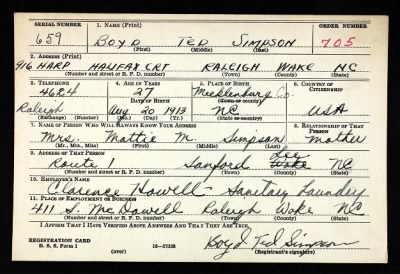 SERIAL NUMBER 1. NAME (Print) ORDER NUMBER
659 BOYD TED SIMPSON 705
(First) (Middle) (Last)
2. ADDRESS (Print)
916 HARP HALIFAX CRT RALEIGH WAKE NC
(Number and street or R. F. D. number) (Town) (County) (State)
3. TELEPHONE 4. AGE IN YEARS 5. PLACE OF BIRTH 6. COUNTRY OF CITIZENSHIP
4624 27 Mecklenburg Co.
DATE OF BIRTH (Town or county)
Raleigh Aug 20 1913 NC USA
(Exchange) (Number) (Mo.) (Day) (Yr.) (State or country)
7. NAME OF PERSON WHO WILL ALWAYS KNOW YOUR ADDRESS 8. RELATIONSHIP OF THAT PERSON
Mrs. Mattie M. Simpson Mother
(Mr., Mrs., Miss) (First) (Middle) (Last)
9. ADDRESS OF THAT PERSON
Lee
Route 1 Sanford Wake NC
(Number and street or R. F. D. number) (Town) (County) (State)
10. EMPLOYER'S NAME
Clarence Howell - Sanitary Laundry
11. PLACE OF EMPLOYMENT OR BUSINESS
411 S. McDowell Raleigh Wake NC
(Number and street or R. F. D. number) (Town) (County) (State)
I AFFIRM THAT I HAVE VERIFIED ABOVE ANSWERS AND THAT THEY ARE TRUE.
REGISTRATION CARD
D. S. S. Form 1 (over) 16-17105 Boyd Ted Simpson
(Registrant's signature)